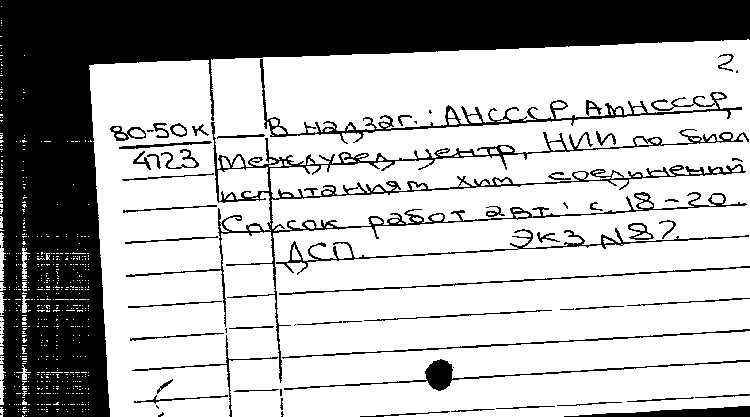 2.
80-50к
4723
В надзаг.: АНСССР, АМНСССР,
Междувед. центр, НИИ по биол
испытаниям хим. соединений
Список работ авт.: с. 18-20.
ДСП. Экз N87.